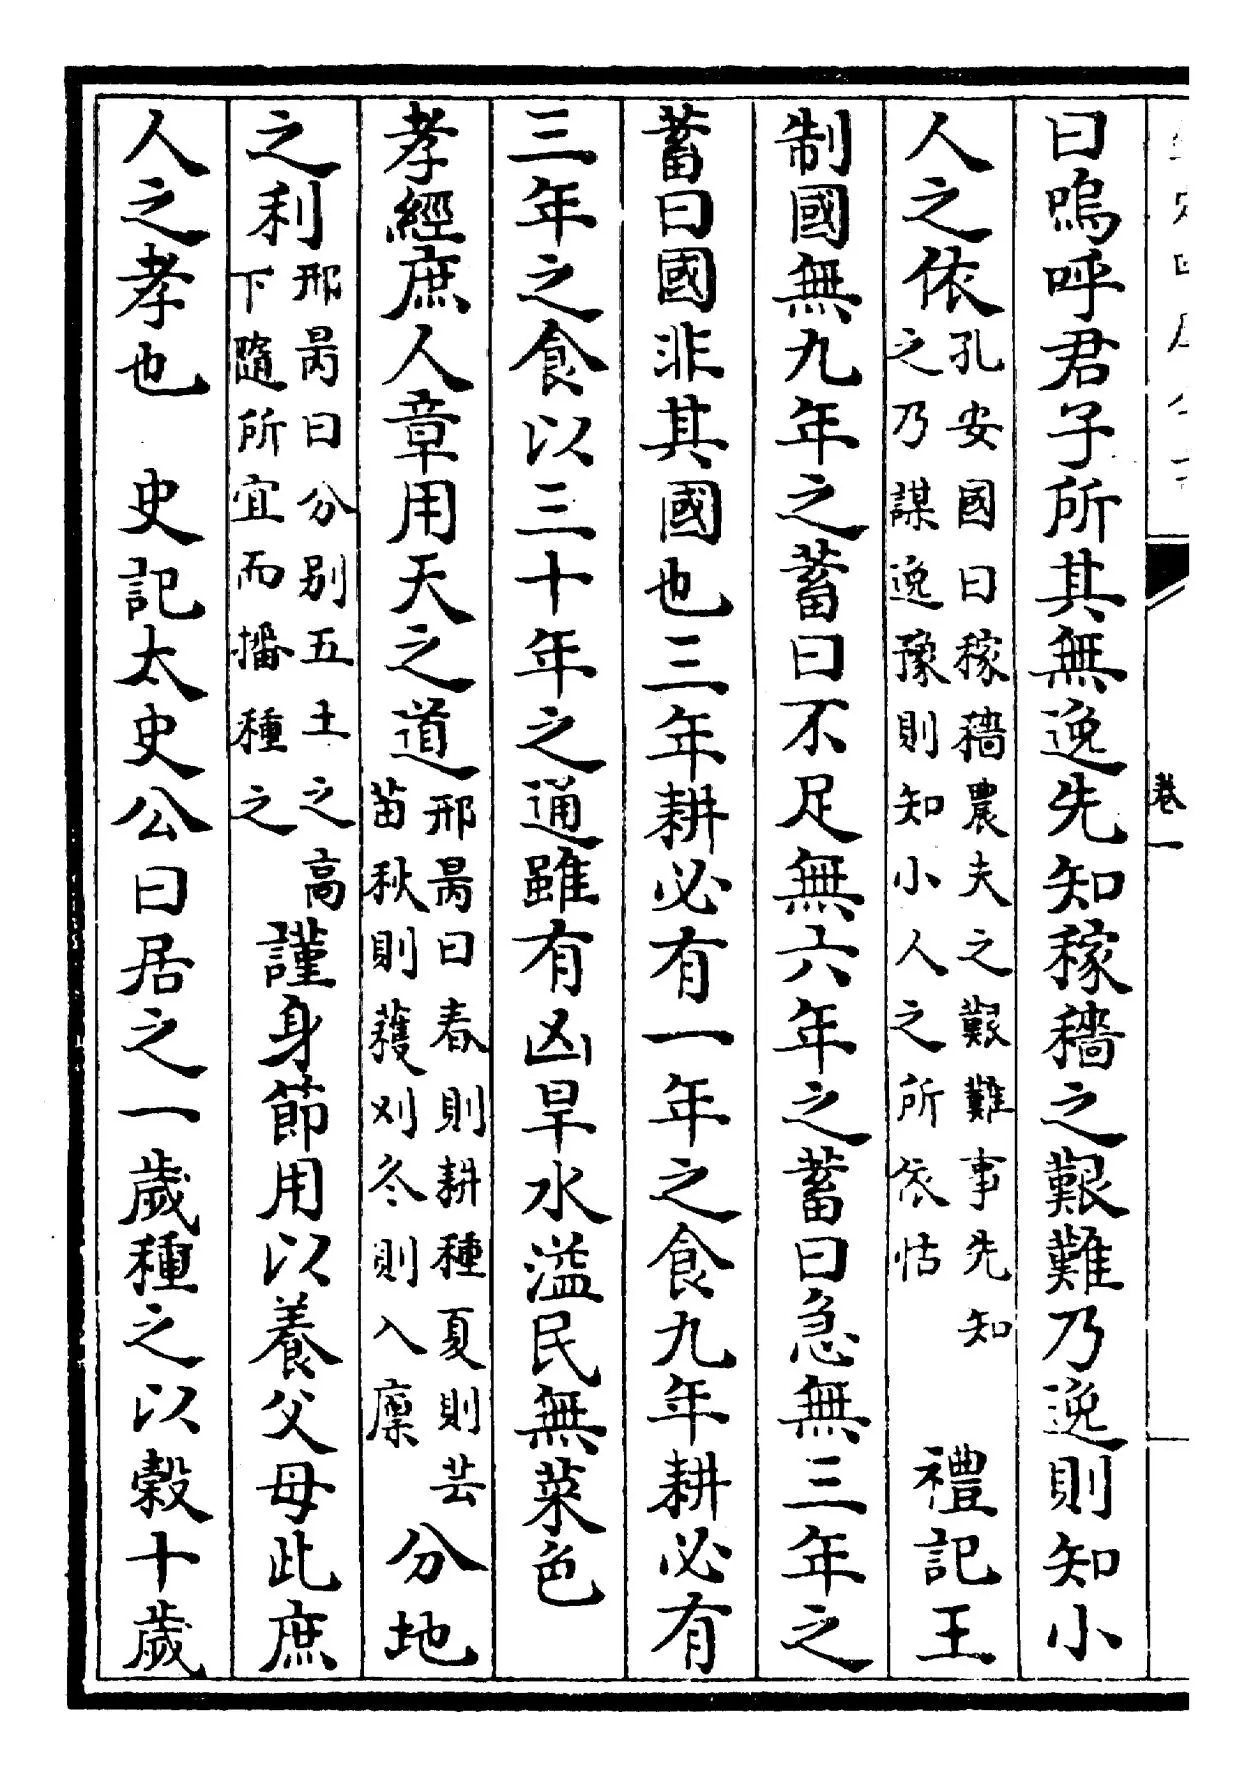 卷一
曰嗚呼君子所其無逸先知稼穡之艱難乃逸則知小
人之依孔安國曰稼穡農夫之艱難事先知之乃謀逸豫則知小人之所依怙 禮記王
制國無九年之蓄曰不足無六年之蓄曰急無三年之
蓄曰國非其國也三年耕必有一年之食九年耕必有
三年之食以三十年之通雖有凶旱水溢民無菜色
孝經庶人章用天之道邢昺曰春則耕種夏則芸苗秋則穫刈冬則入廩分地
之利邢昺曰分别五土之高下隨所宜而播種之謹身節用以養父母此庶
人之孝也 史記太史公曰居之一歲種之以榖十歲